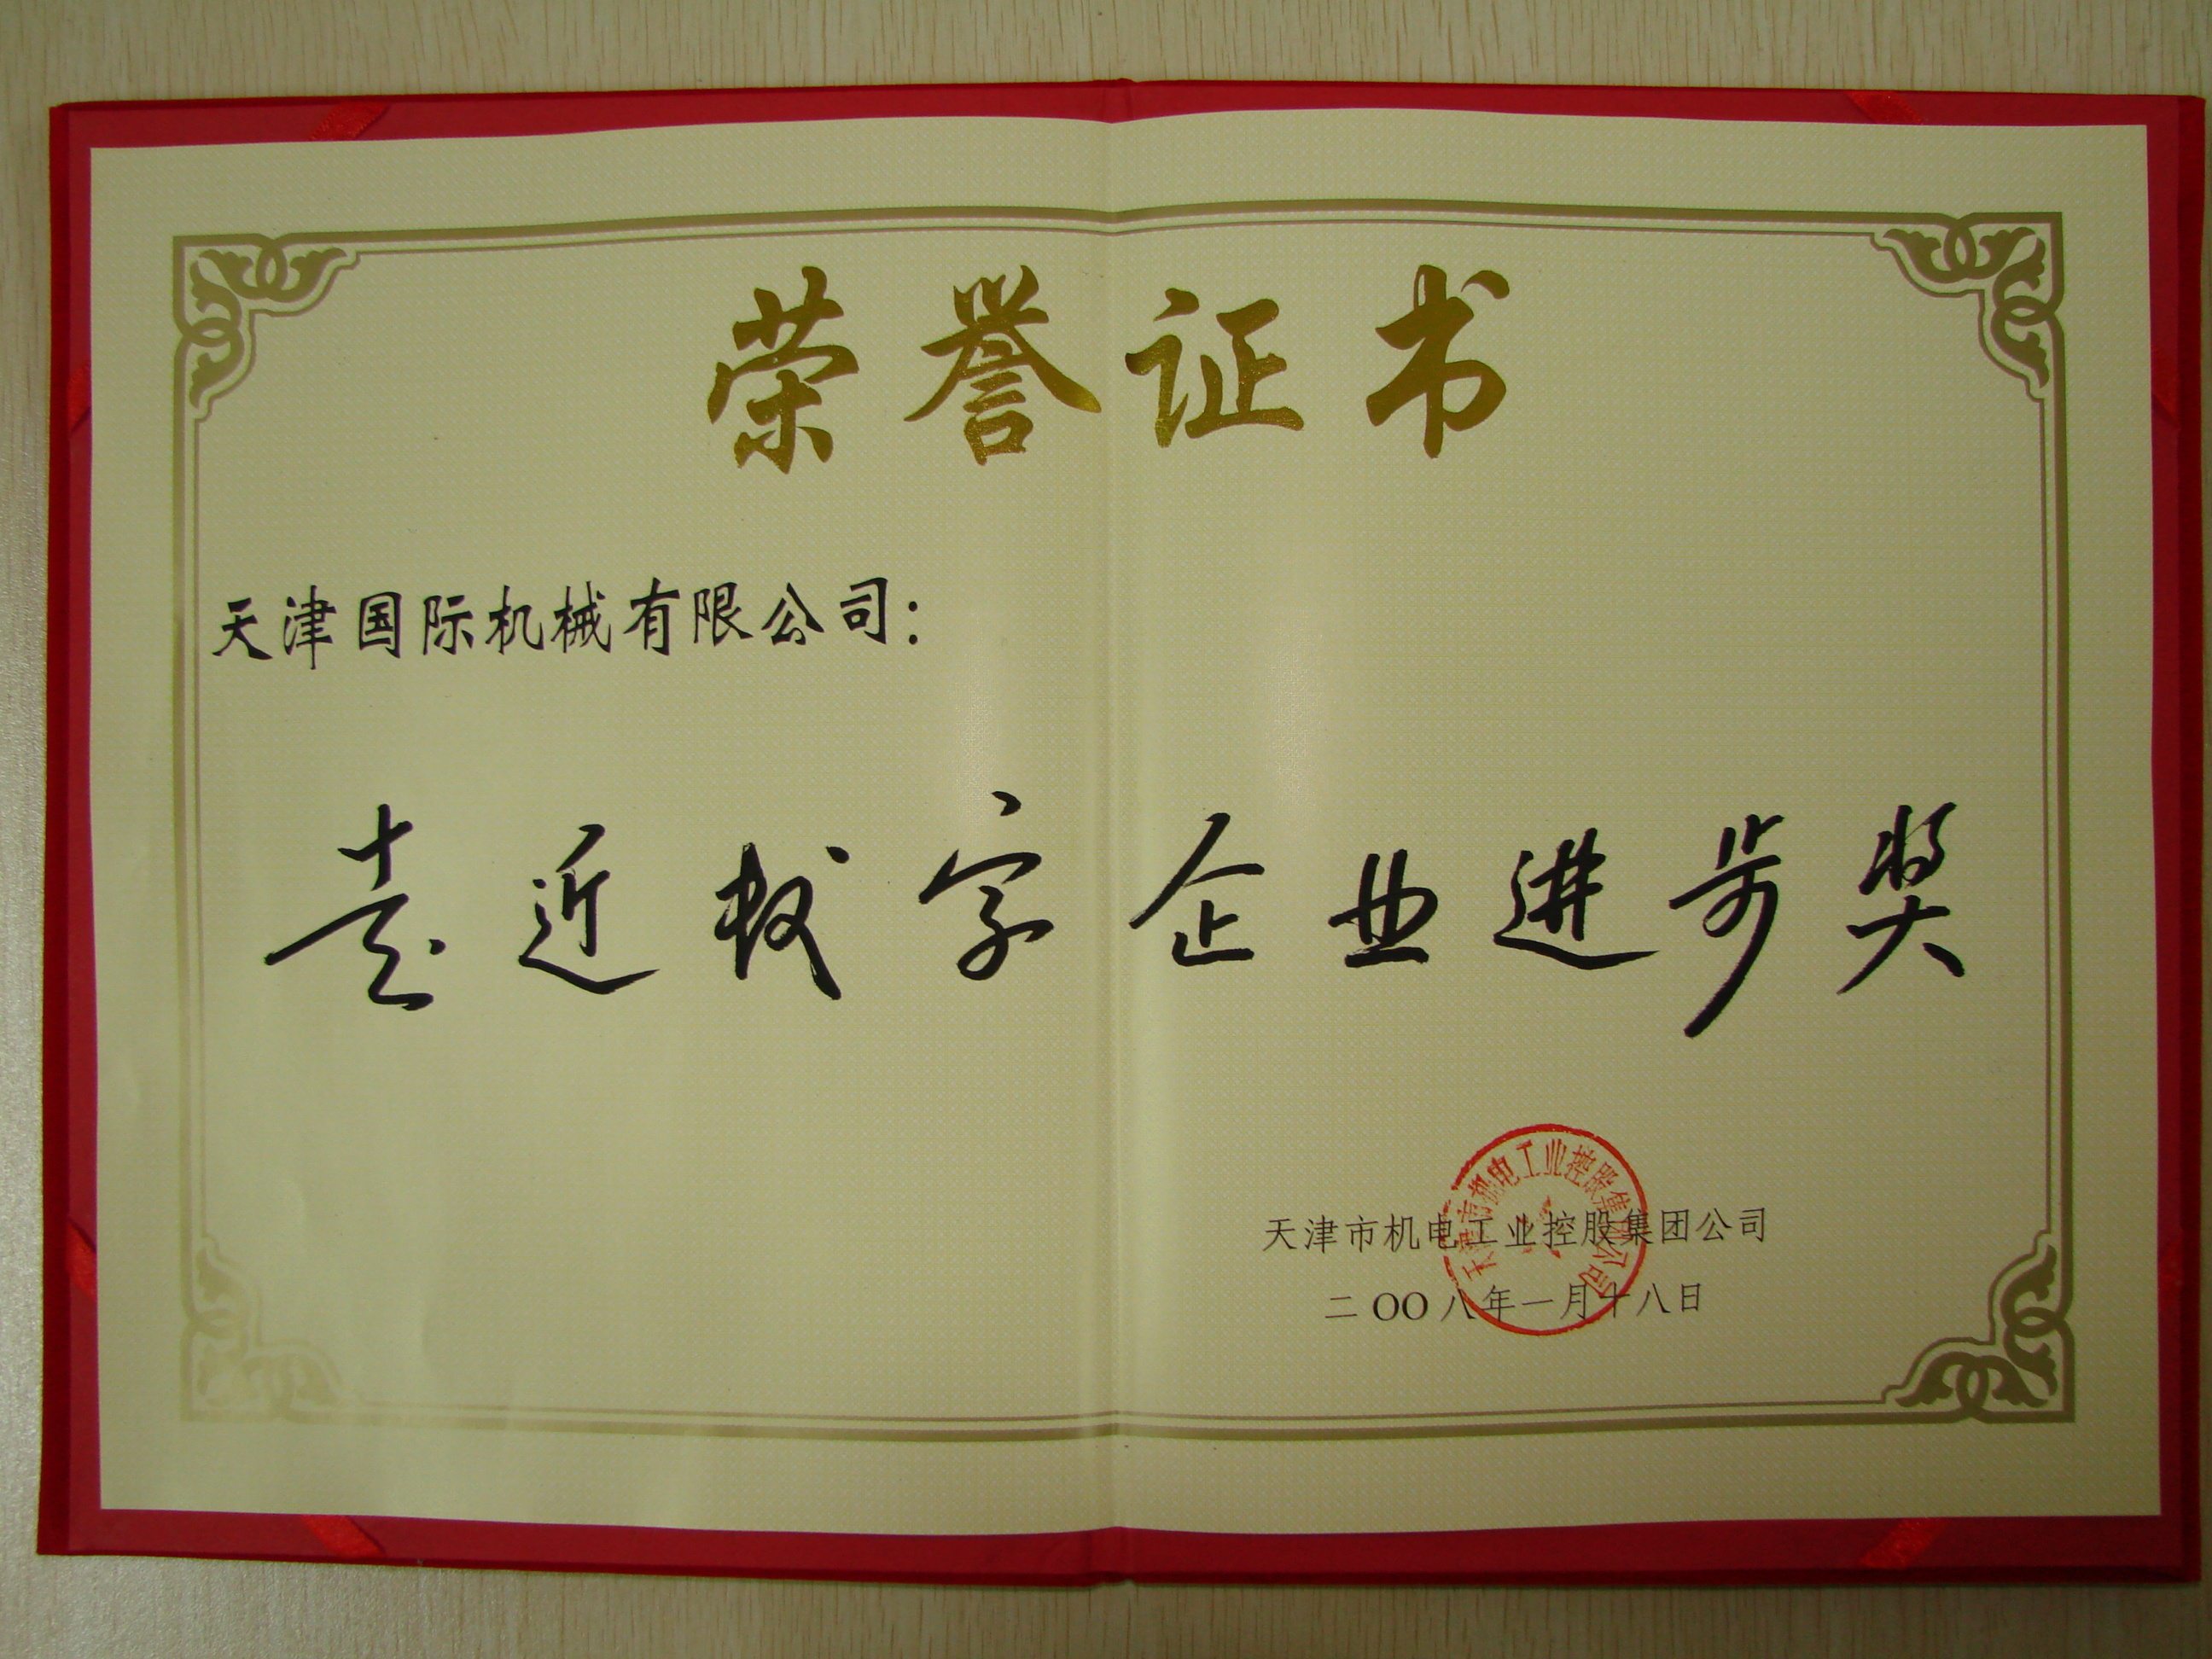 荣誉证书
天津国际机械有限公司：
近 字企业进步奖
天津市机电工业控股集团公司
天津市机电工业控股集团公司
二〇〇八年一月十八日